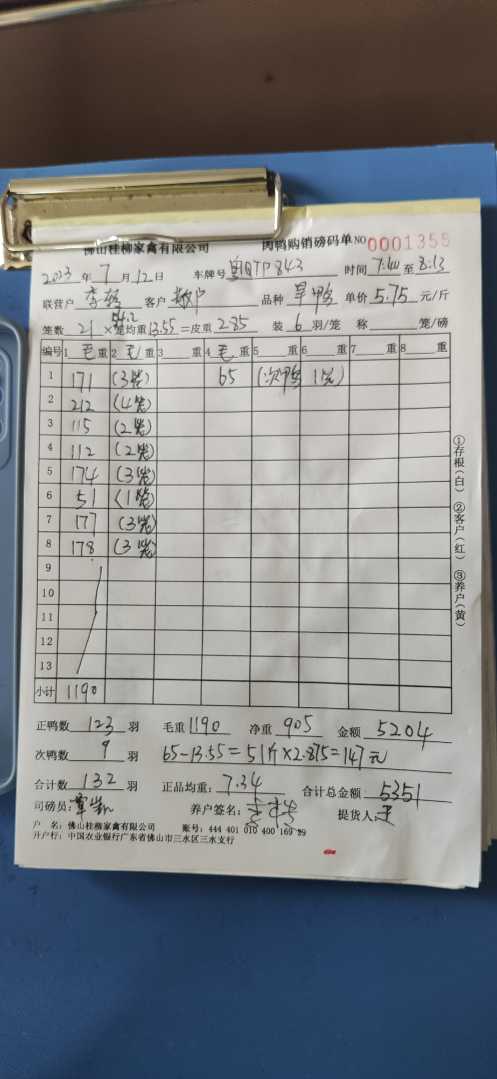 佛山桂柳家禽有限公司 肉鸭购销磅码单 NO 0001355
2023 年 7 月 12 日 车牌号 TP843 时间 7:40 至 8:13
联营户 李 客户 散户 品种 旱鸭 单价 5.75 元/斤
笼数 21 × 笼均重 13.55 = 皮重 285 装 6 羽/笼 称 笼/磅
编号 1 毛 重 2 毛 重 3 重 4 毛 重 5 重 6 重 7 重 8 重
1 171 (3笼) 65 (次鸭 1笼)
2 212 (4笼)
3 115 (2笼)
4 112 (2笼)
5 174 (3笼)
6 51 (1笼)
7 177 (3笼)
8 178 (3笼)
9
10
11
12
13
小计 1190
正鸭数 123 羽 毛重 1190 净重 905 金额 5204
次鸭数 9 羽 65-13.55=51斤×2.875=147元
合计数 132 羽 正品均重: 7.34 合计总金额 5351
司磅员: 养户签名: 李 提货人:
户 名: 佛山桂柳家禽有限公司 账号: 444 401 010 400 169 39
开户行: 中国农业银行广东省佛山市三水区三水支行
①存根(白) ②客户(红) ③养户(黄)